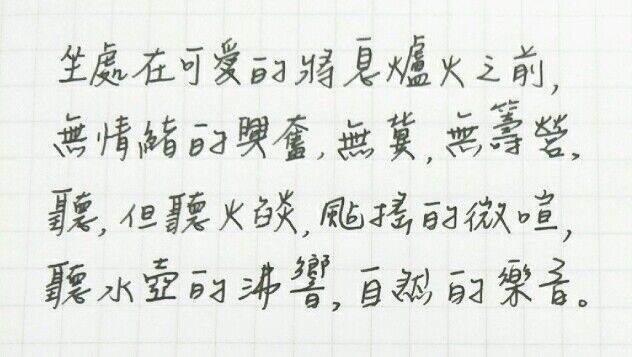 坐處在可愛的將息爐火之前,
無情緒的興奮,無冀,無籌營,
聽,但聽火燄,颭搖的微喧,
聽水壺的沸響,自然的樂音。